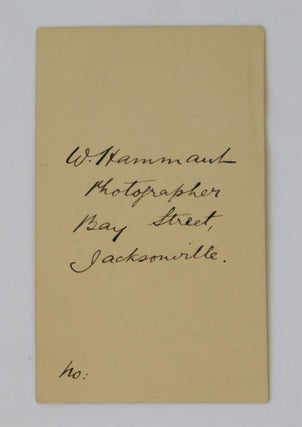 W. Hammant
Photographer
Bay Street,
Jacksonville.
No: